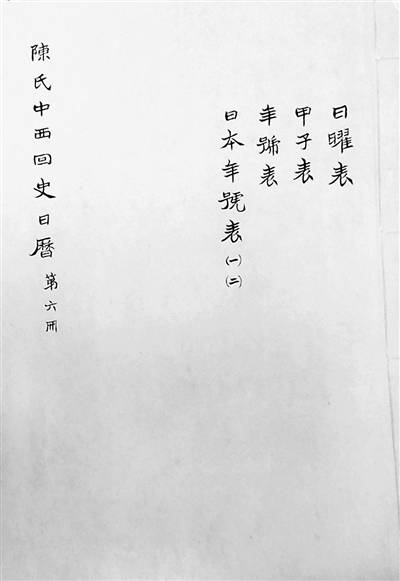 日曜表
甲子表
年號表
日本年號表㈠㈡
陳氏中西回史日曆 第六冊